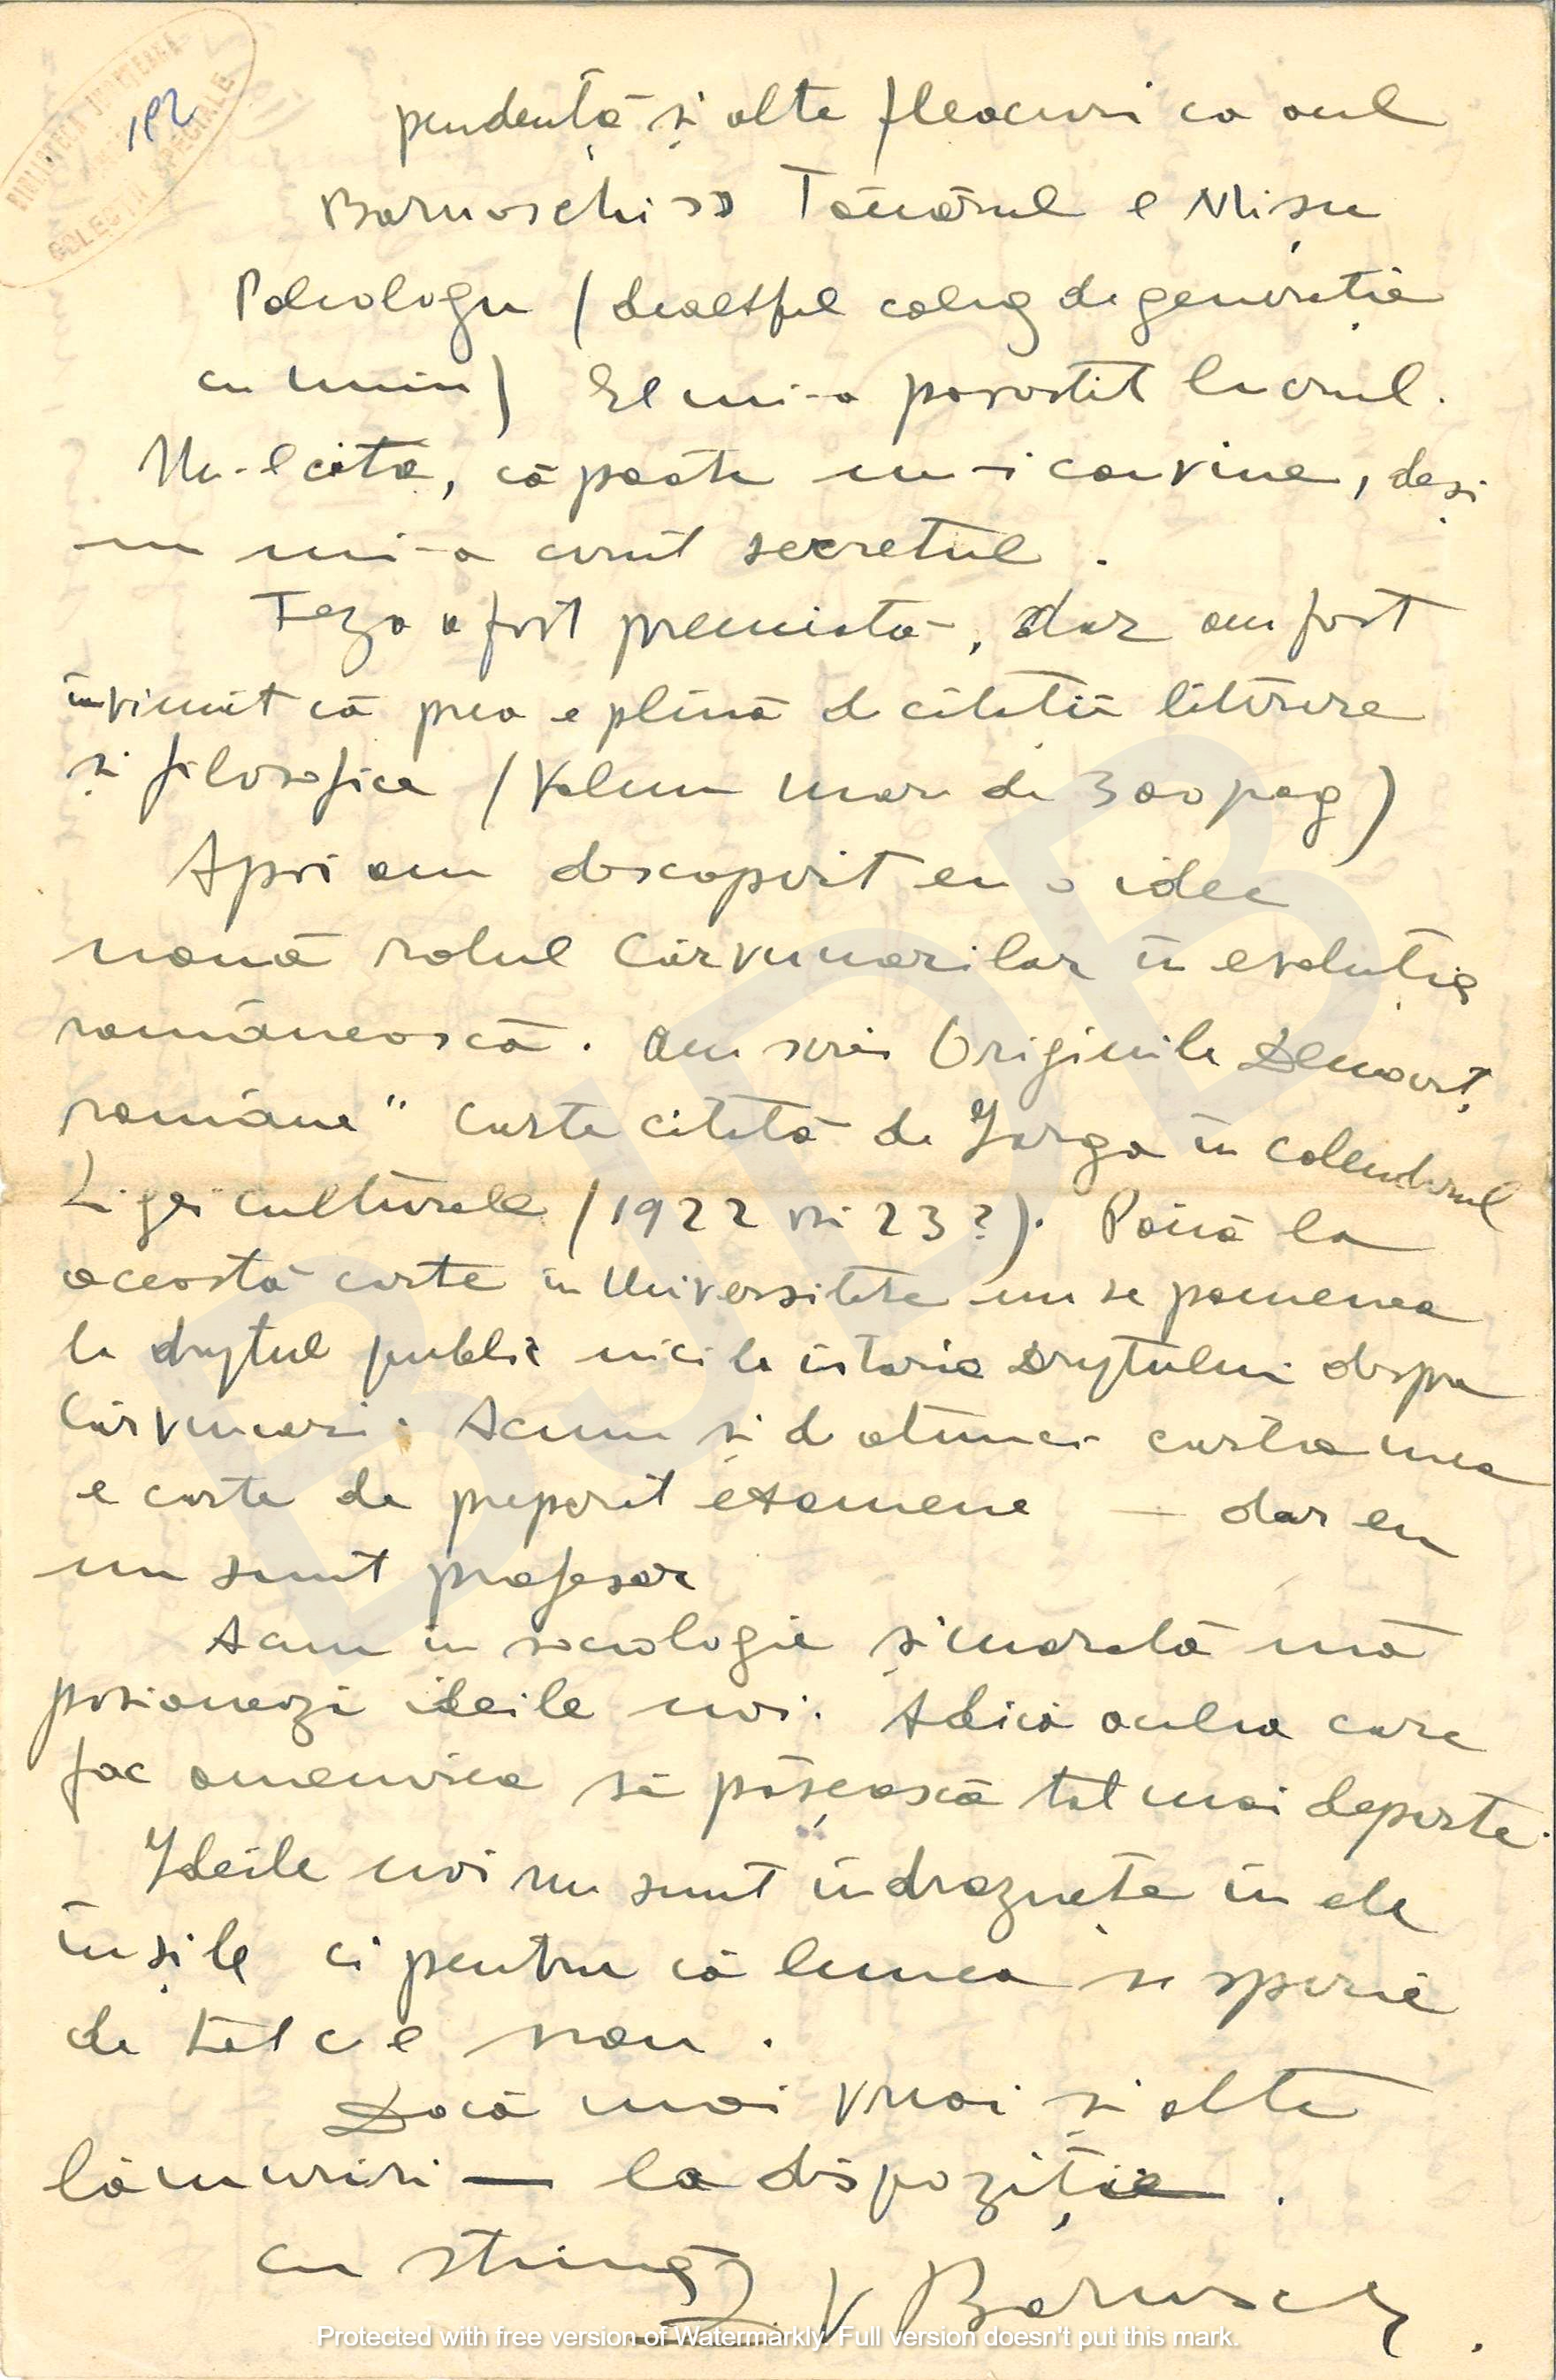 BIBLIOTECA JUDEȚEANĂ
COLECȚII SPECIALE
pendență și alte fleacuri ca acel
Barnoschi >> Tânărul e Mișu
Paleologu (dealtfel coleg de generație
cu mine) El mi-a povestit lucrul.
Nu-l cita, că poate nu-i convine, deși
nu mi-a cerut secretul.
Teza a fost premiată, dar am fost
învinuit că prea e plină de citații literare
și filosofice (Volum mare de 300 pag)
Apoi am descoperit eu o idee
nouă rolul Cărvunarilor în evoluția
românească. Am scris Originile Democrț.
române" Carte citată de Iorga în calendarul
Ligei culturale (1922 ori 23?). Până la
această carte în Universitate nu se pomenea
la dreptul public nici la istoria dreptului despre
Cărvunari. Acum și de atunci cartea mea
e carte de preparat examene — dar eu
nu sunt profesor
Acum în sociologie și morală mă
pasionează ideile noi. Adică acelea care
fac omenirea să pășească tot mai departe.
Ideile noi nu sunt îndraznețe în ele
însile ci pentru că lumea se sperie
de tot ce e nou.
Dacă mai vrei și alte
lămuriri — la dispoziție.
cu stimă
V Barnoschi.
BJDB
Protected with free version of Watermarkly. Full version doesn't put this mark.